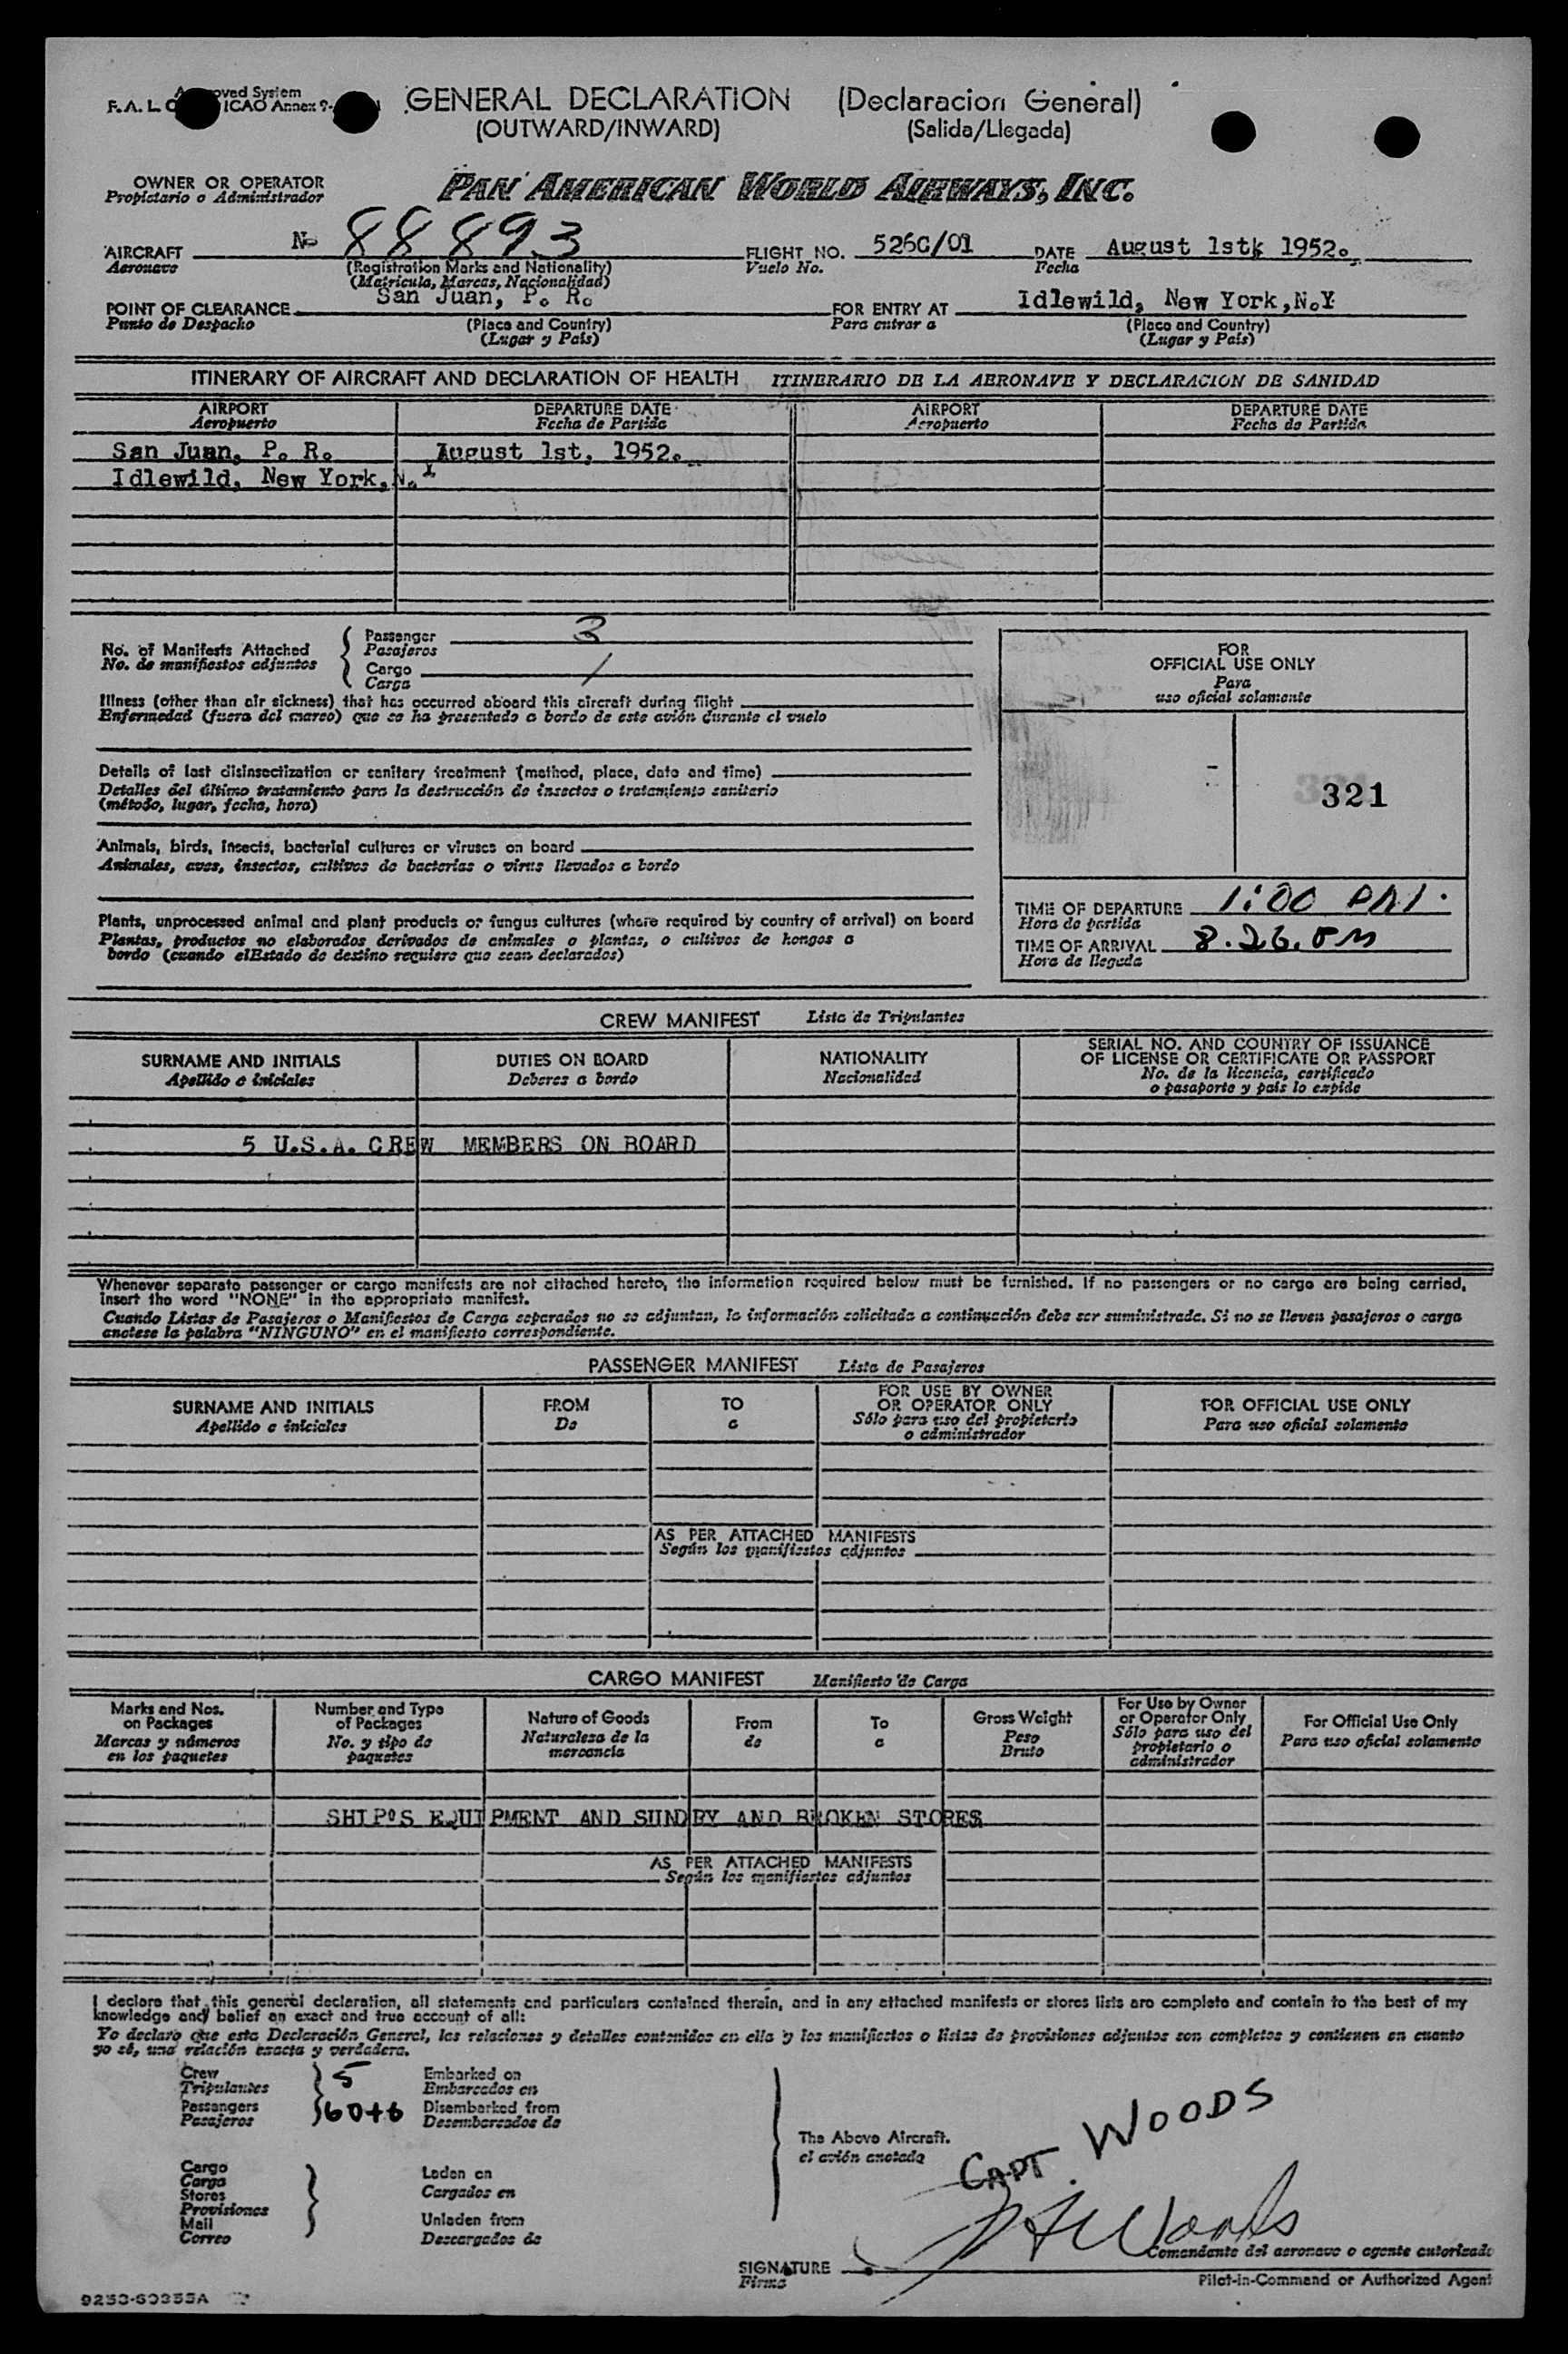 Approved System
F. A. L. ICAO Annex 9
GENERAL DECLARATION (Declaracion General)
(OUTWARD/INWARD) (Salida/Llegada)
OWNER OR OPERATOR
Propietario o Administrador
PAN AMERICAN WORLD AIRWAYS, INC.
AIRCRAFT No 88893 FLIGHT NO. 526C/01 DATE August 1st, 1952.
Aeronave (Registration Marks and Nationality) Vuelo No. Fecha
(Matricula, Marcas, Nacionalidad)
San Juan, P. R. Idlewild, New York,N.Y
POINT OF CLEARANCE FOR ENTRY AT
Punto de Despacho (Place and Country) Para entrar a (Place and Country)
(Lugar y País) (Lugar y País)
ITINERARY OF AIRCRAFT AND DECLARATION OF HEALTH ITINERARIO DE LA AERONAVE Y DECLARACION DE SANIDAD
AIRPORT DEPARTURE DATE AIRPORT DEPARTURE DATE
Aeropuerto Fecha de Partida Aeropuerto Fecha de Partida
San Juan, P. R. August 1st, 1952.
Idlewild, New York,N.Y
No. of Manifests Attached
No. de manifiestos adjuntos
Passenger 3
Pasajeros
Cargo 1
Carga
Illness (other than air sickness) that has occurred aboard this aircraft during flight
Enfermedad (fuera del mareo) que se ha presentado a bordo de este avión durante el vuelo
Details of last disinsectization or sanitary treatment (method, place, date and time)
Detalles del último tratamiento para la destrucción de insectos o tratamiento sanitario
(método, lugar, fecha, hora)
Animals, birds, insects, bacterial cultures or viruses on board
Animales, aves, insectos, cultivos de bacterias o virus llevados a bordo
Plants, unprocessed animal and plant products or fungus cultures (where required by country of arrival) on board
Plantas, productos no elaborados derivados de animales o plantas, o cultivos de hongos a
bordo (cuando elEstado de destino requiere que sean declarados)
FOR
OFFICIAL USE ONLY
Para
uso oficial solamente
321
TIME OF DEPARTURE 1:00 PM.
Hora de partida
TIME OF ARRIVAL 8.26.PM
Hora de llegada
CREW MANIFEST Lista de Tripulantes
SURNAME AND INITIALS DUTIES ON BOARD NATIONALITY SERIAL NO. AND COUNTRY OF ISSUANCE
OF LICENSE OR CERTIFICATE OR PASSPORT
Apellido e iniciales Deberes a bordo Nacionalidad No. de la licencia, certificado
o pasaporte y país lo expide
5 U.S.A. CREW MEMBERS ON BOARD
Whenever separate passenger or cargo manifests are not attached hereto, the information required below must be furnished. If no passengers or no cargo are being carried,
insert the word "NONE" in the appropriate manifest.
Cuando Listas de Pasajeros o Manifiestos de Carga separados no se adjuntan, la información solicitada a continuación debe ser suministrada. Si no se lleven pasajeros o carga
anotese la palabra "NINGUNO" en el manifiesto correspondiente.
PASSENGER MANIFEST Lista de Pasajeros
SURNAME AND INITIALS FROM TO FOR USE BY OWNER FOR OFFICIAL USE ONLY
OR OPERATOR ONLY
Apellido e iniciales De a Sólo para uso del propietario Para uso oficial solamente
o administrador
AS PER ATTACHED MANIFESTS
Según los manifiestos adjuntos
CARGO MANIFEST Manifiesto de Carga
Marks and Nos.
on Packages
Marcas y números
en los paquetes
Number and Type
of Packages
No. y tipo de
paquetes
Nature of Goods
Naturaleza de la
mercancía
From
de
To
a
Gross Weight
Peso
Bruto
For Use by Owner
or Operator Only
Sólo para uso del
propietario o
administrador
For Official Use Only
Para uso oficial solamente
SHIP'S EQUIPMENT AND SUNDRY AND BROKEN STORES
AS PER ATTACHED MANIFESTS
Según los manifiestos adjuntos
I declare that this general declaration, all statements and particulars contained therein, and in any attached manifests or stores lists are complete and contain to the best of my
knowledge and belief an exact and true account of all:
Yo declaro que esta Declaración General, las relaciones y detalles contenidos en ella y los manifiestos o listas de provisiones adjuntos son completos y contienen en cuanto
yo sé, una relación exacta y verdadera.
Crew 5 Embarked on
Tripulantes Embarcados en
Passengers 60+6 Disembarked from
Pasajeros Desembarcados de
The Above Aircraft.
el avión anotado
Cargo
Carga
Stores
Provisiones
Mail
Correo
Laden on
Cargados en
Unladen from
Descargados de
CAPT. WOODS
SIGNATURE
Firma
Comandante del aeronave o agente autorizado
Pilot-in-Command or Authorized Agent